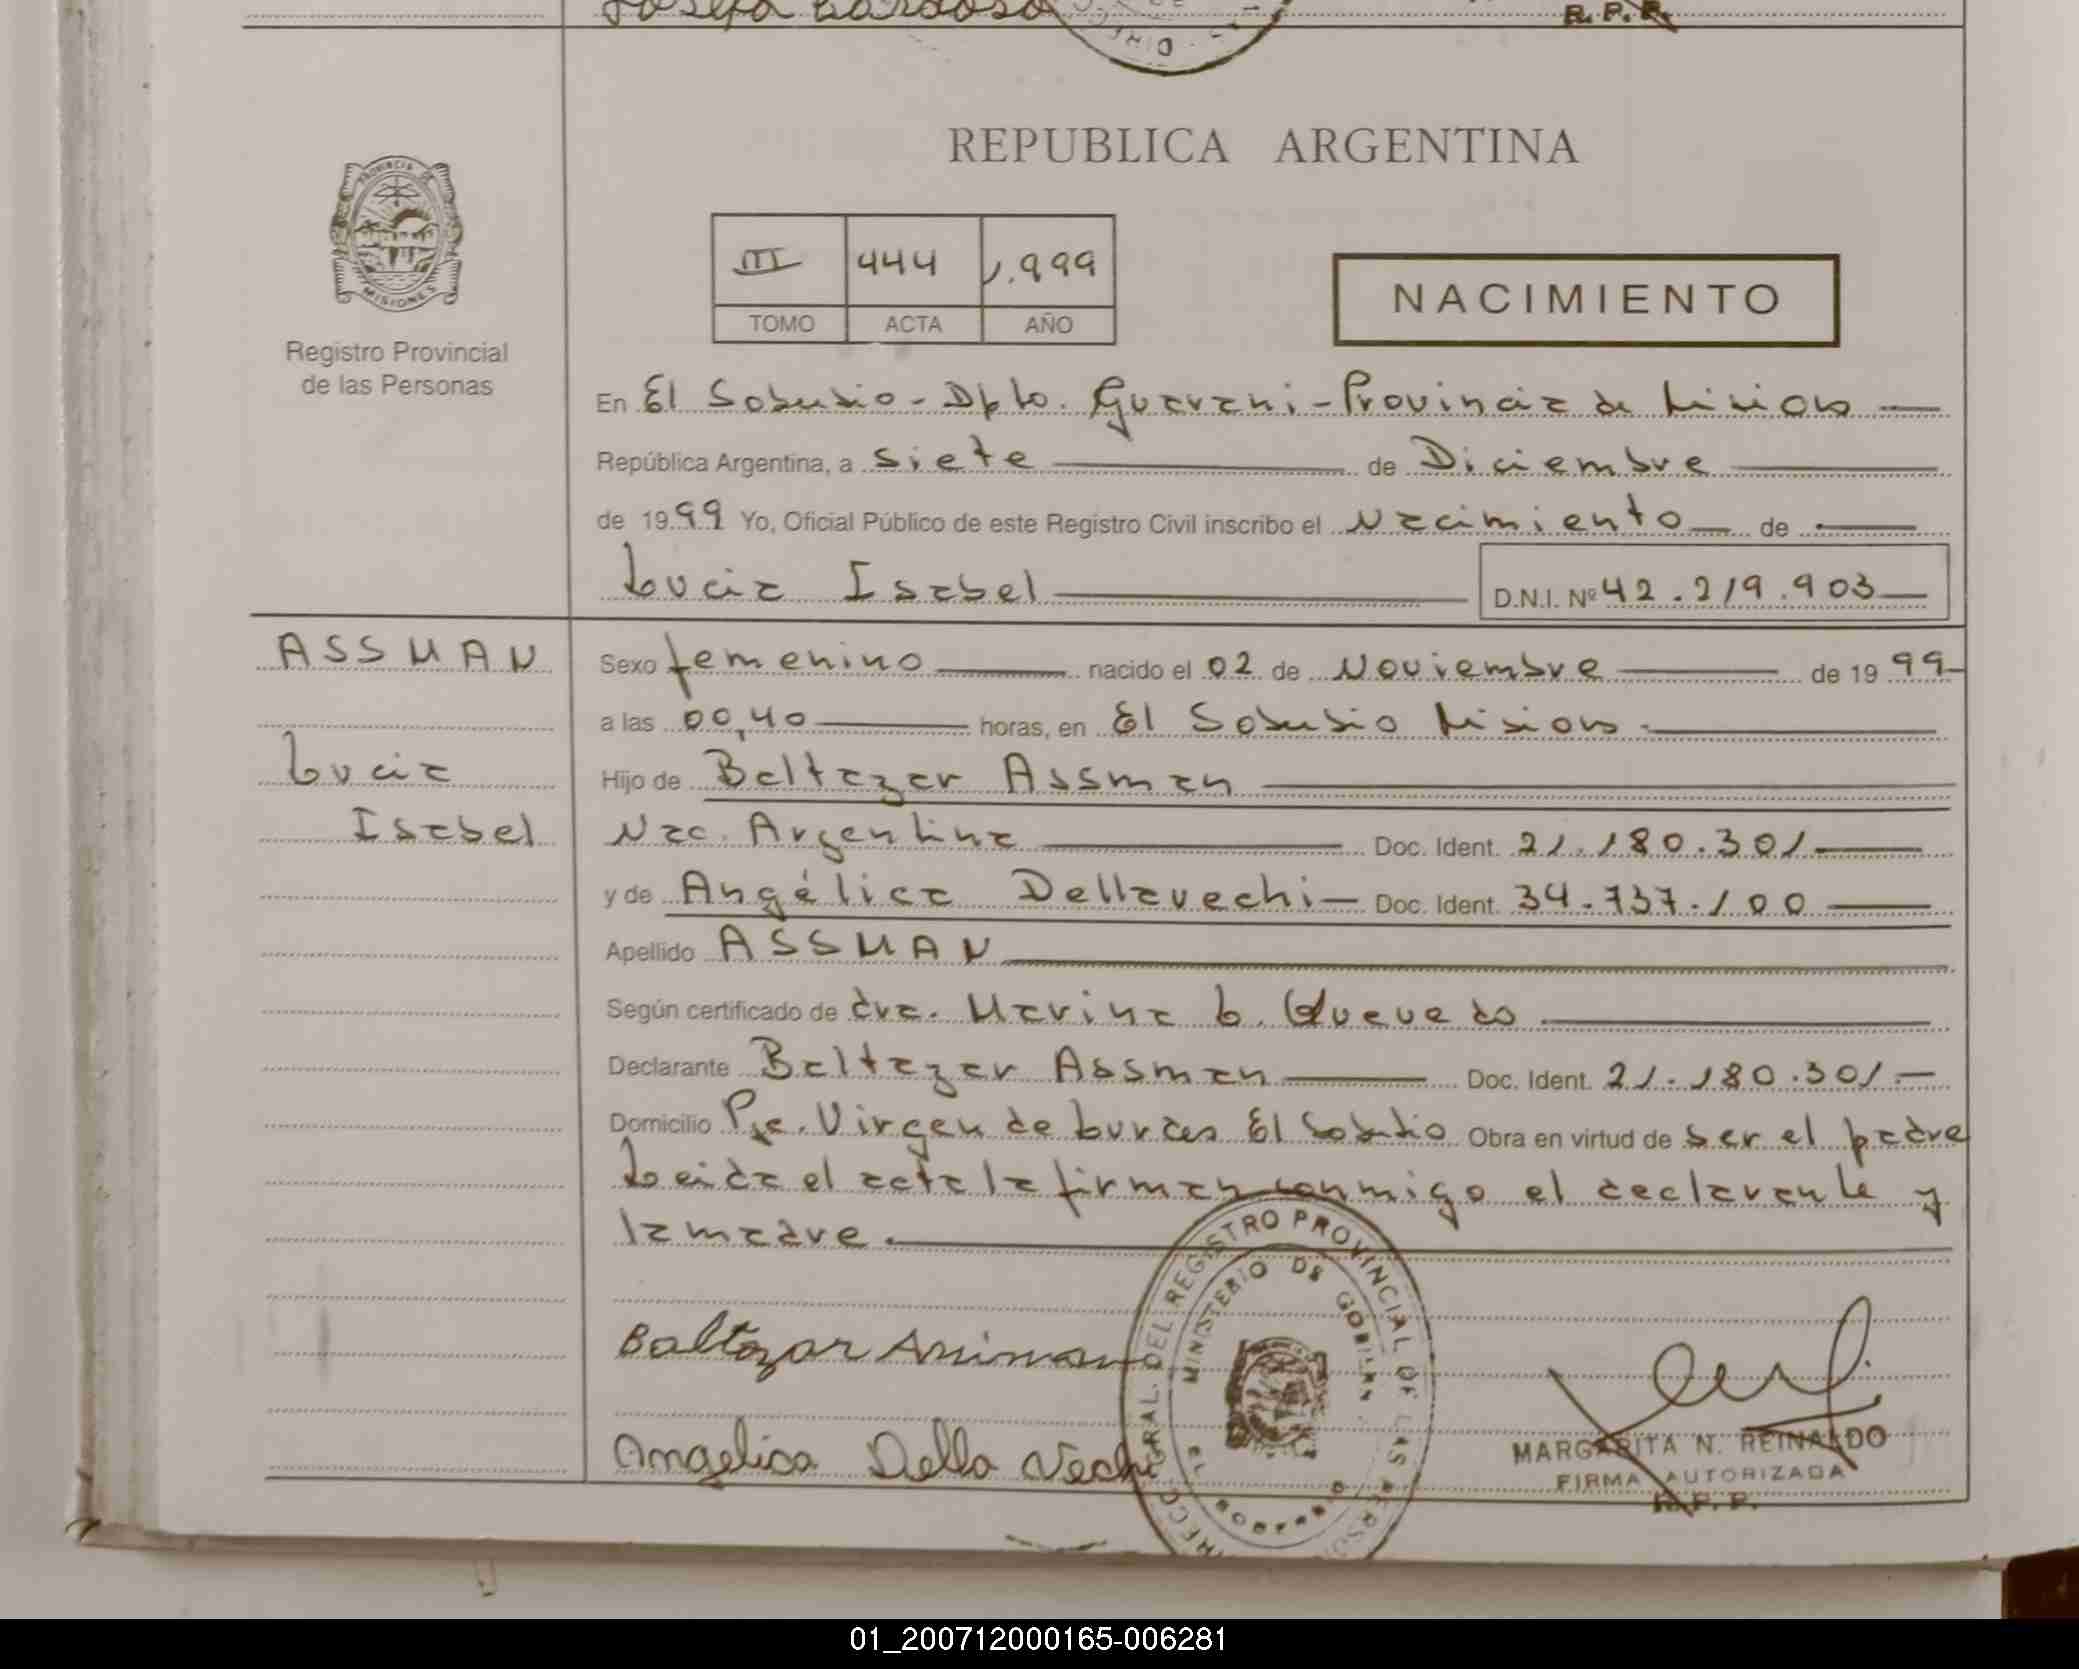 Josefa Cardoso
R. P. P.
REPUBLICA ARGENTINA
PROVINCIA DE MISIONES
Registro Provincial
de las Personas
III 444 1.999
TOMO ACTA AÑO
NACIMIENTO
En El Soberbio - Dpto. Guarani - Provincia de Misiones
República Argentina, a siete de Diciembre
de 1999 Yo, Oficial Público de este Registro Civil inscribo el Nacimiento de
Lucia Isabel D.N.I. Nº 42.219.903
ASSMAN
Lucia
Isabel
Sexo femenino nacido el 02 de Noviembre de 1999
a las 00,40 horas, en El Soberbio Misiones
Hijo de Baltazar Assman
Nac. Argentina Doc. Ident. 21.180.301
y de Angélica Dellavechi Doc. Ident. 34.737.100
Apellido ASSMAN
Según certificado de dra. Marina L. Quevedo
Declarante Baltazar Assman Doc. Ident. 21.180.301.
Domicilio Pje. Virgen de Lurdes El Soberbio Obra en virtud de ser el padre
Leida el acta la firman conmigo el declarante y
la madre.
Baltazar Assman
Angelica Della Vechi
DEL REGISTRO PROVINCIAL DE LAS PERSO
MINISTERIO DE GOBIERNO
MARGARITA N. REINALDO
FIRMA AUTORIZADA
R. P. P.
01_200712000165-006281